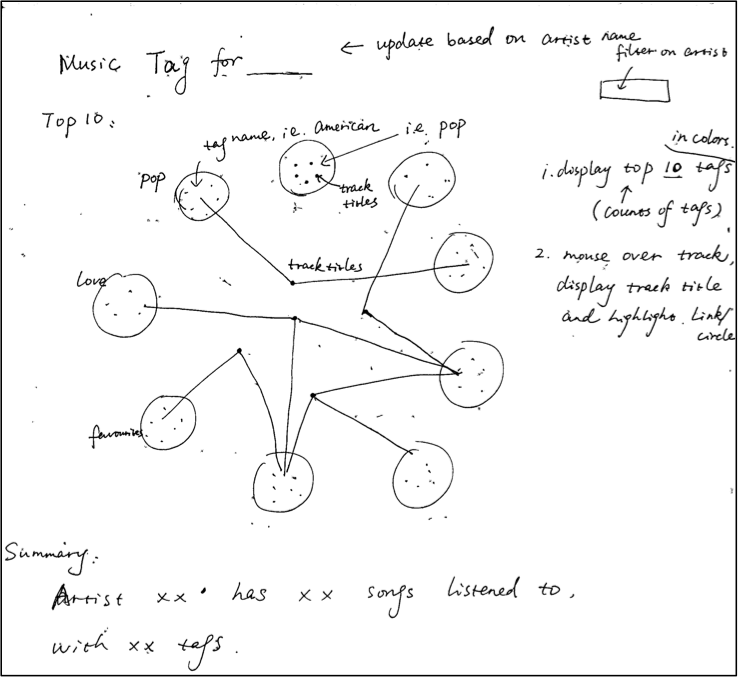 Music Tag for ____
← update based on artist name
filter on artist
Top 10:
tag name, i.e. American
i.e. pop
pop
track
titles
track titles
Love
favourites
in colors.
1. display top 10 tags
(counts of tags)
2. mouse over track,
display track title
and highlight. Link/
circle
Summary:
Artist xx has xx songs listened to,
with xx tags.